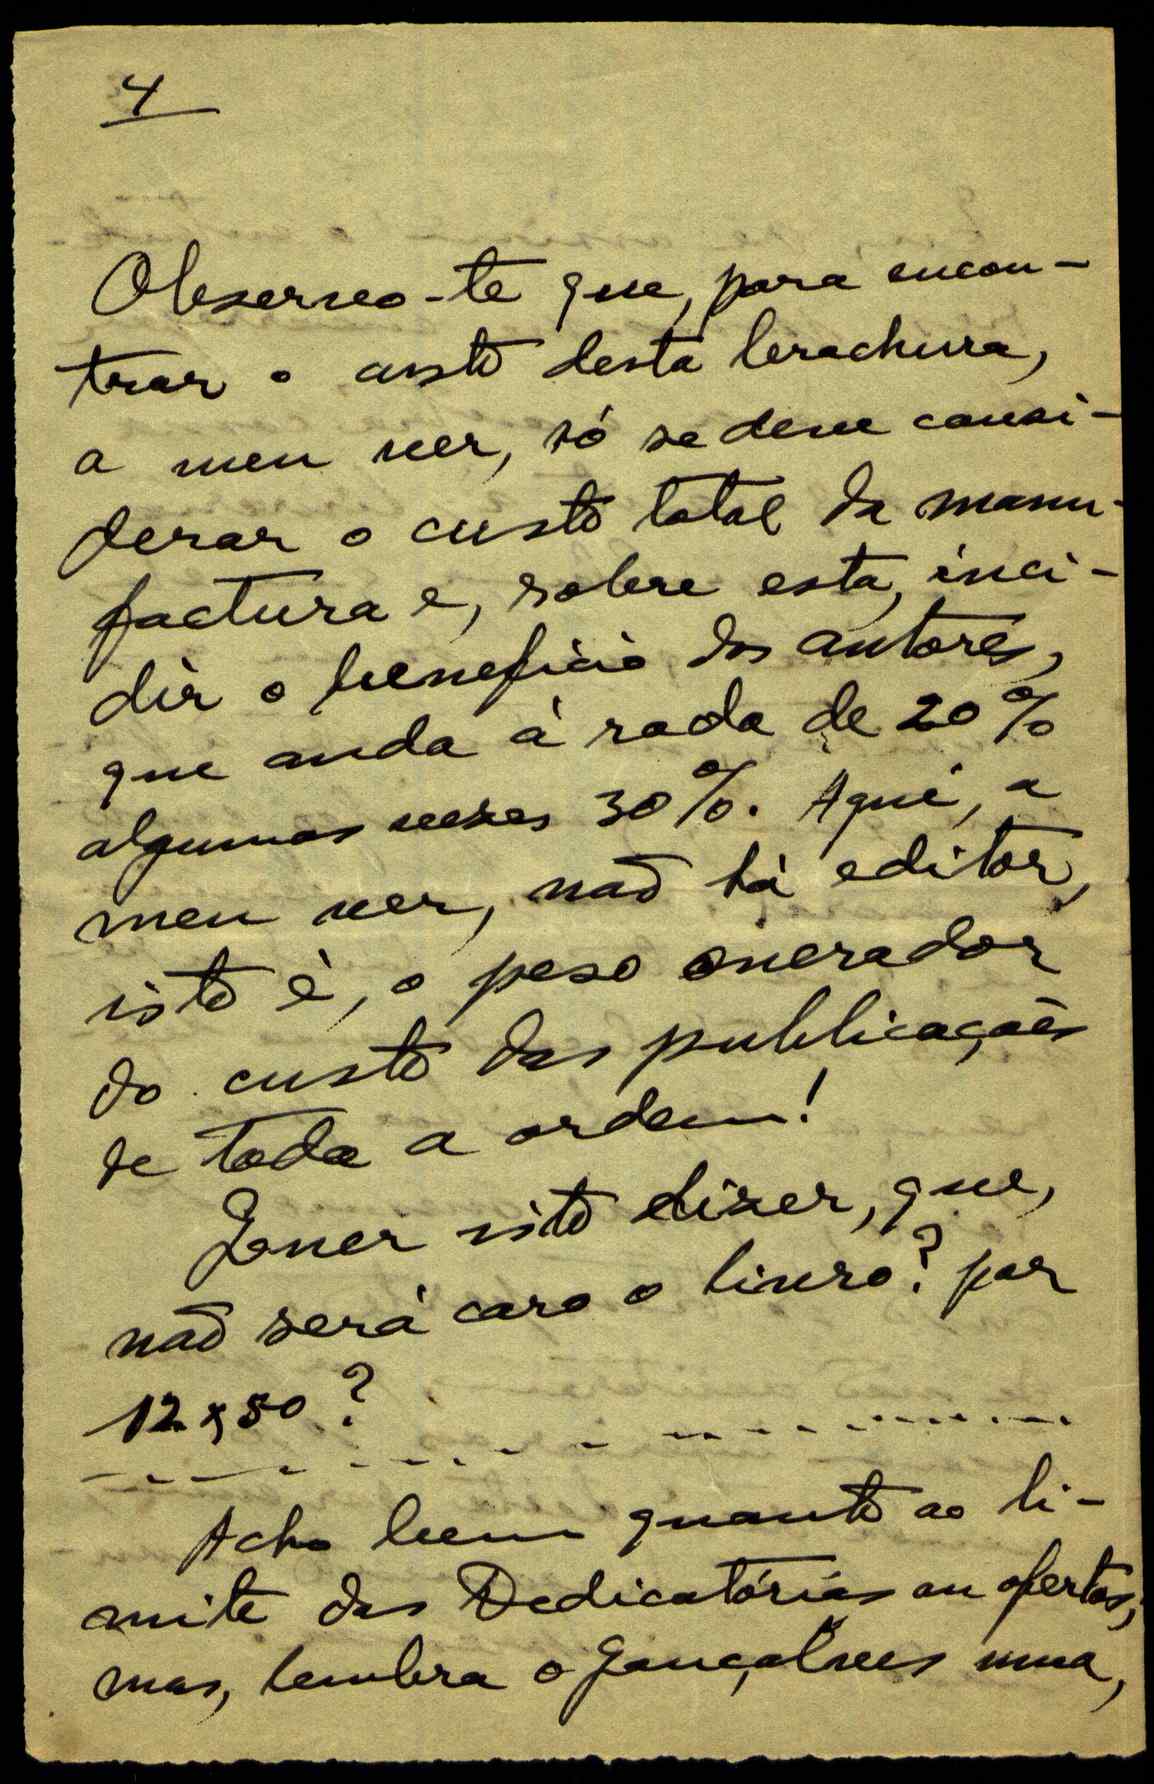 4
Observo-te que, para encon-
trar o custo desta brochura,
a meu ver, só se deve consi-
derar o custo total da manu-
factura e, sobre esta, inci-
dir o beneficio dos autores,
que anda à roda de 20%
algumas vezes 30%. Aqui, a
meu ver, não há editor,
isto é, o peso onerador
do custo das publicações
de toda a ordem!
Quer isto dizer, que,
não será caro o livro? por
12x50?
Acho bem quanto ao li-
mite das Dedicatórias ou ofertas,
mas, lembra o Gonçalves uma,